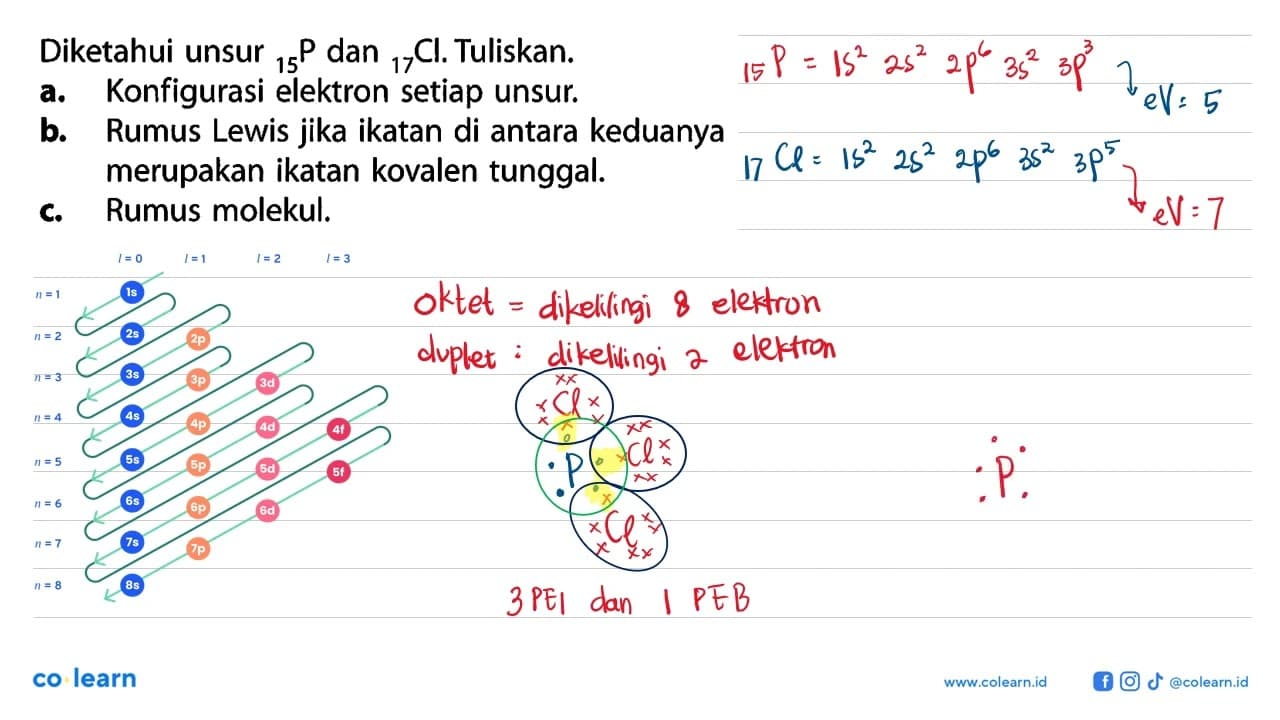 Diketahui unsur ₁₅P dan ₁₇Cl. Tuliskan.
a. Konfigurasi elektron setiap unsur.
b. Rumus Lewis jika ikatan di antara keduanya
merupakan ikatan kovalen tunggal.
c. Rumus molekul.
₁₅P = 1s² 2s² 2p⁶ 3s² 3p³
eV = 5
₁₇Cl = 1s² 2s² 2p⁶ 3s² 3p⁵
eV = 7
l = 0 l = 1 l = 2 l = 3
n = 1 1s
n = 2 2s 2p
n = 3 3s 3p 3d
n = 4 4s 4p 4d 4f
n = 5 5s 5p 5d 5f
n = 6 6s 6p 6d
n = 7 7s 7p
n = 8 8s
oktet = dikelilingi 8 elektron
duplet : dikelilingi 2 elektron
Cl
Cl
P
Cl
P
3 PEI dan 1 PEB
co learn
www.colearn.id
@colearn.id